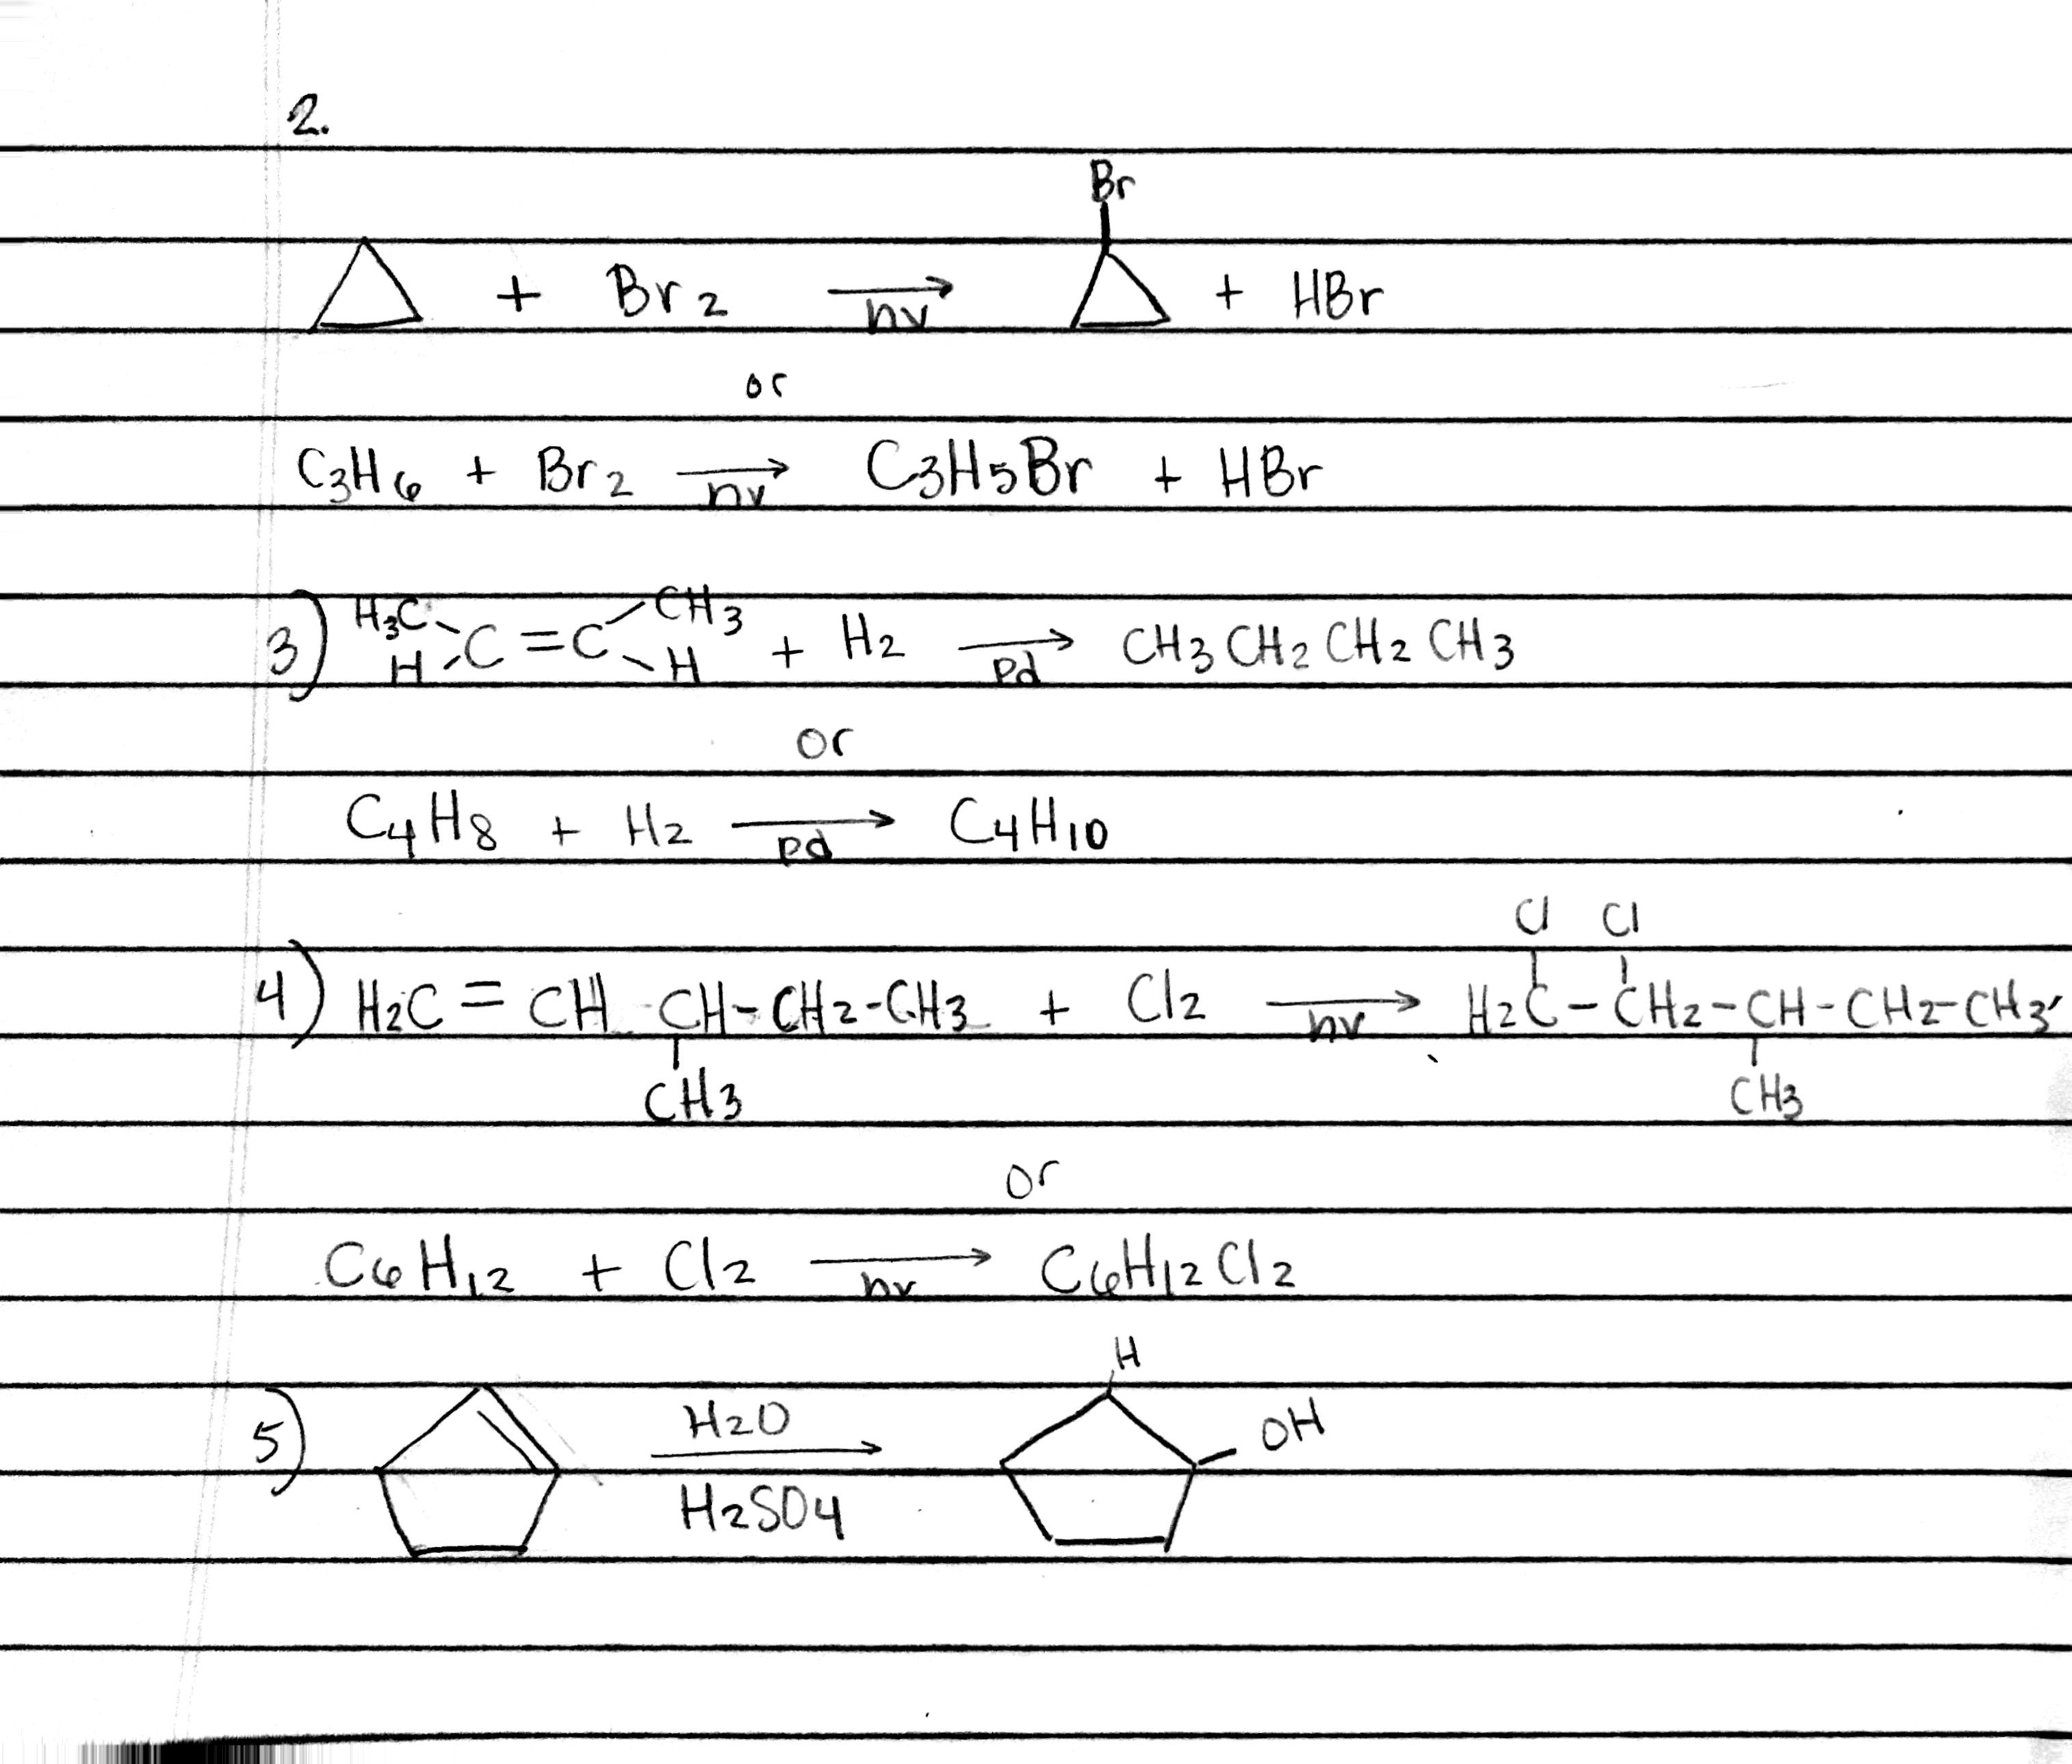 2.
Br
+ Br2 → hv + HBr
or
C3H6 + Br2 → hv C3H5Br + HBr
3) H3C CH3
C = C + H2 → pd CH3CH2CH2CH3
H H
or
C4H8 + H2 → pd C4H10
Cl Cl
4) H2C = CH CH-CH2-CH3 + Cl2 → hv H2C-CH2-CH-CH2-CH3
CH3 CH3
or
C6H12 + Cl2 → hv C6H12Cl2
H
5) H2O → OH
H2SO4